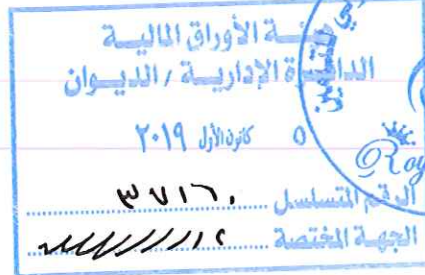 هيئة الأوراق المالية
الدائرة الإدارية / الديوان
٥ كانون الأول ٢٠١٩
الرقم المتسلسل ٣٧١٦٠
الجهة المختصة
Roy